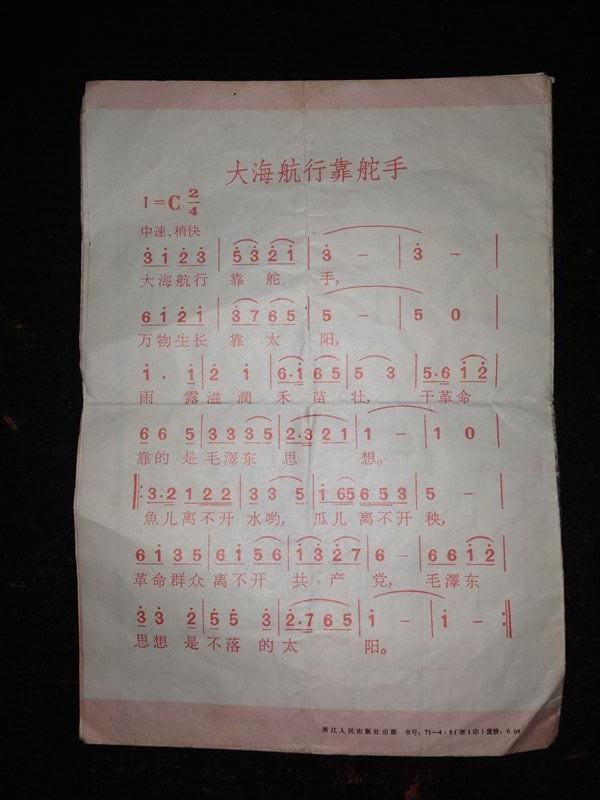 大海航行靠舵手
1=C 2/4
中速、稍快
3 1 2 3 | 5 3 2 1 | 3 – | 3 – |
大海航行 靠 舵 手,
6 1 2 1 | 3 7 6 5 | 5 – | 5 0 |
万物生长 靠 太 阳,
1 . 1 | 2 1 | 6·1 6 5 | 5 3 | 5·6 1 2 |
雨 露滋潤 禾 苗 壮, 干革命
6 6 5 | 3 3 3 5 | 2·3 2 1 | 1 – | 1 0 |
靠的 是毛澤东 思 想。
‖: 3·2 1 2 2 | 3 3 5 | 1 65 6 5 3 | 5 – |
魚儿离不开 水哟, 瓜儿 离不开 秧,
6 1 3 5 | 6 1 5 6 | 1 3 2 7 | 6 – | 6 6 1 2 |
革命群众 离不开 共 产 党, 毛澤东
3 3 2 | 5 5 3 | 2·7 6 5 | 1 – | 1 – :‖
思想 是不落 的太 阳。
浙江人民出版社出版 书号: 71—4·5(浙1印)定价: 0.04